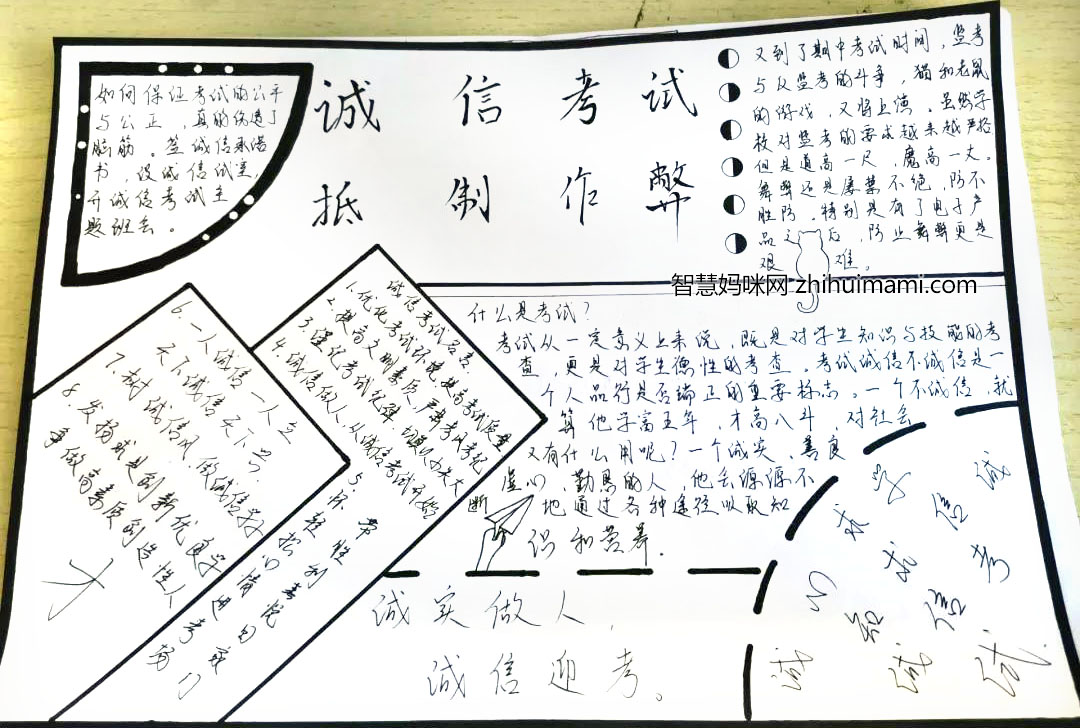 诚信考试
抵制作弊
如何保证考试的公平
与公正，真的伤透了
脑筋。签诚信承诺
书，设诚信试室，
开诚信考试主
题班会。
又到了期中考试时间，监考
与反监考的斗争，猫和老鼠
的游戏，又将上演。虽然学
校对监考的要求越来越严格
但是道高一尺，魔高一丈。
舞弊还是屡禁不绝，防不
胜防。特别是有了电子产
品之后，防止舞弊更是
艰难。
智慧妈咪网 zhihuimami.com
什么是考试？
考试从一定意义上来说，既是对学生知识与技能的考
查，更是对学生德性的考查。考试诚信不诚信是一
个人品行是否端正的重要标志。一个不诚信，就
算他学富五车，才高八斗，对社会
又有什么用呢？一个诚实，善良
虚心，勤恳的人，他会源源不
断地通过各种途径吸取知
识和营养.
诚信考试名言.
1.优化考试环境,提高考试质量
2.提高文明素质,严肃考风考纪
3.强化考试纪律
4.诚信做人,从诚信考试开始
5.怀
6.一人诚信一人立
天下诚信天下兴.
7.树诚信风.做诚信
8.发扬
争做高素质创造性人
才
诚实做人,
诚信迎考。
诚信考试
诚信